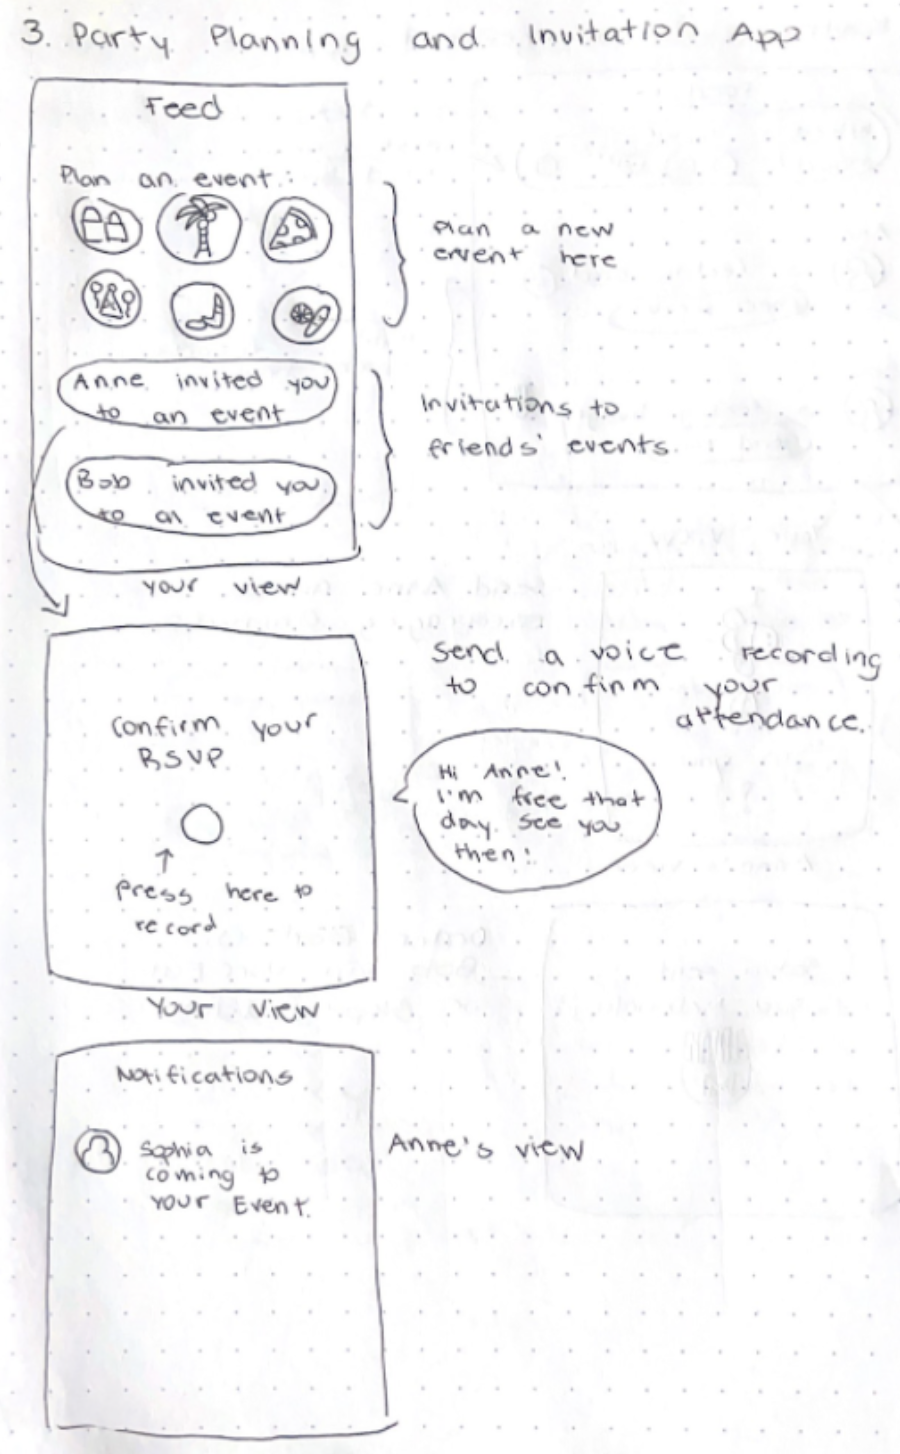 3. Party Planning and Invitation App
Feed
Plan an event:
Plan a new
event here
Anne invited you
to an event
Bob invited you
to an event
Invitations to
friends' events
your view
Confirm your
RSVP
press here to
record
Send a voice recording
to confirm your
attendance.
Hi Anne!
I'm free that
day. See you
then!
Your view
Notifications
Sophia is
coming to
your Event.
Anne's view